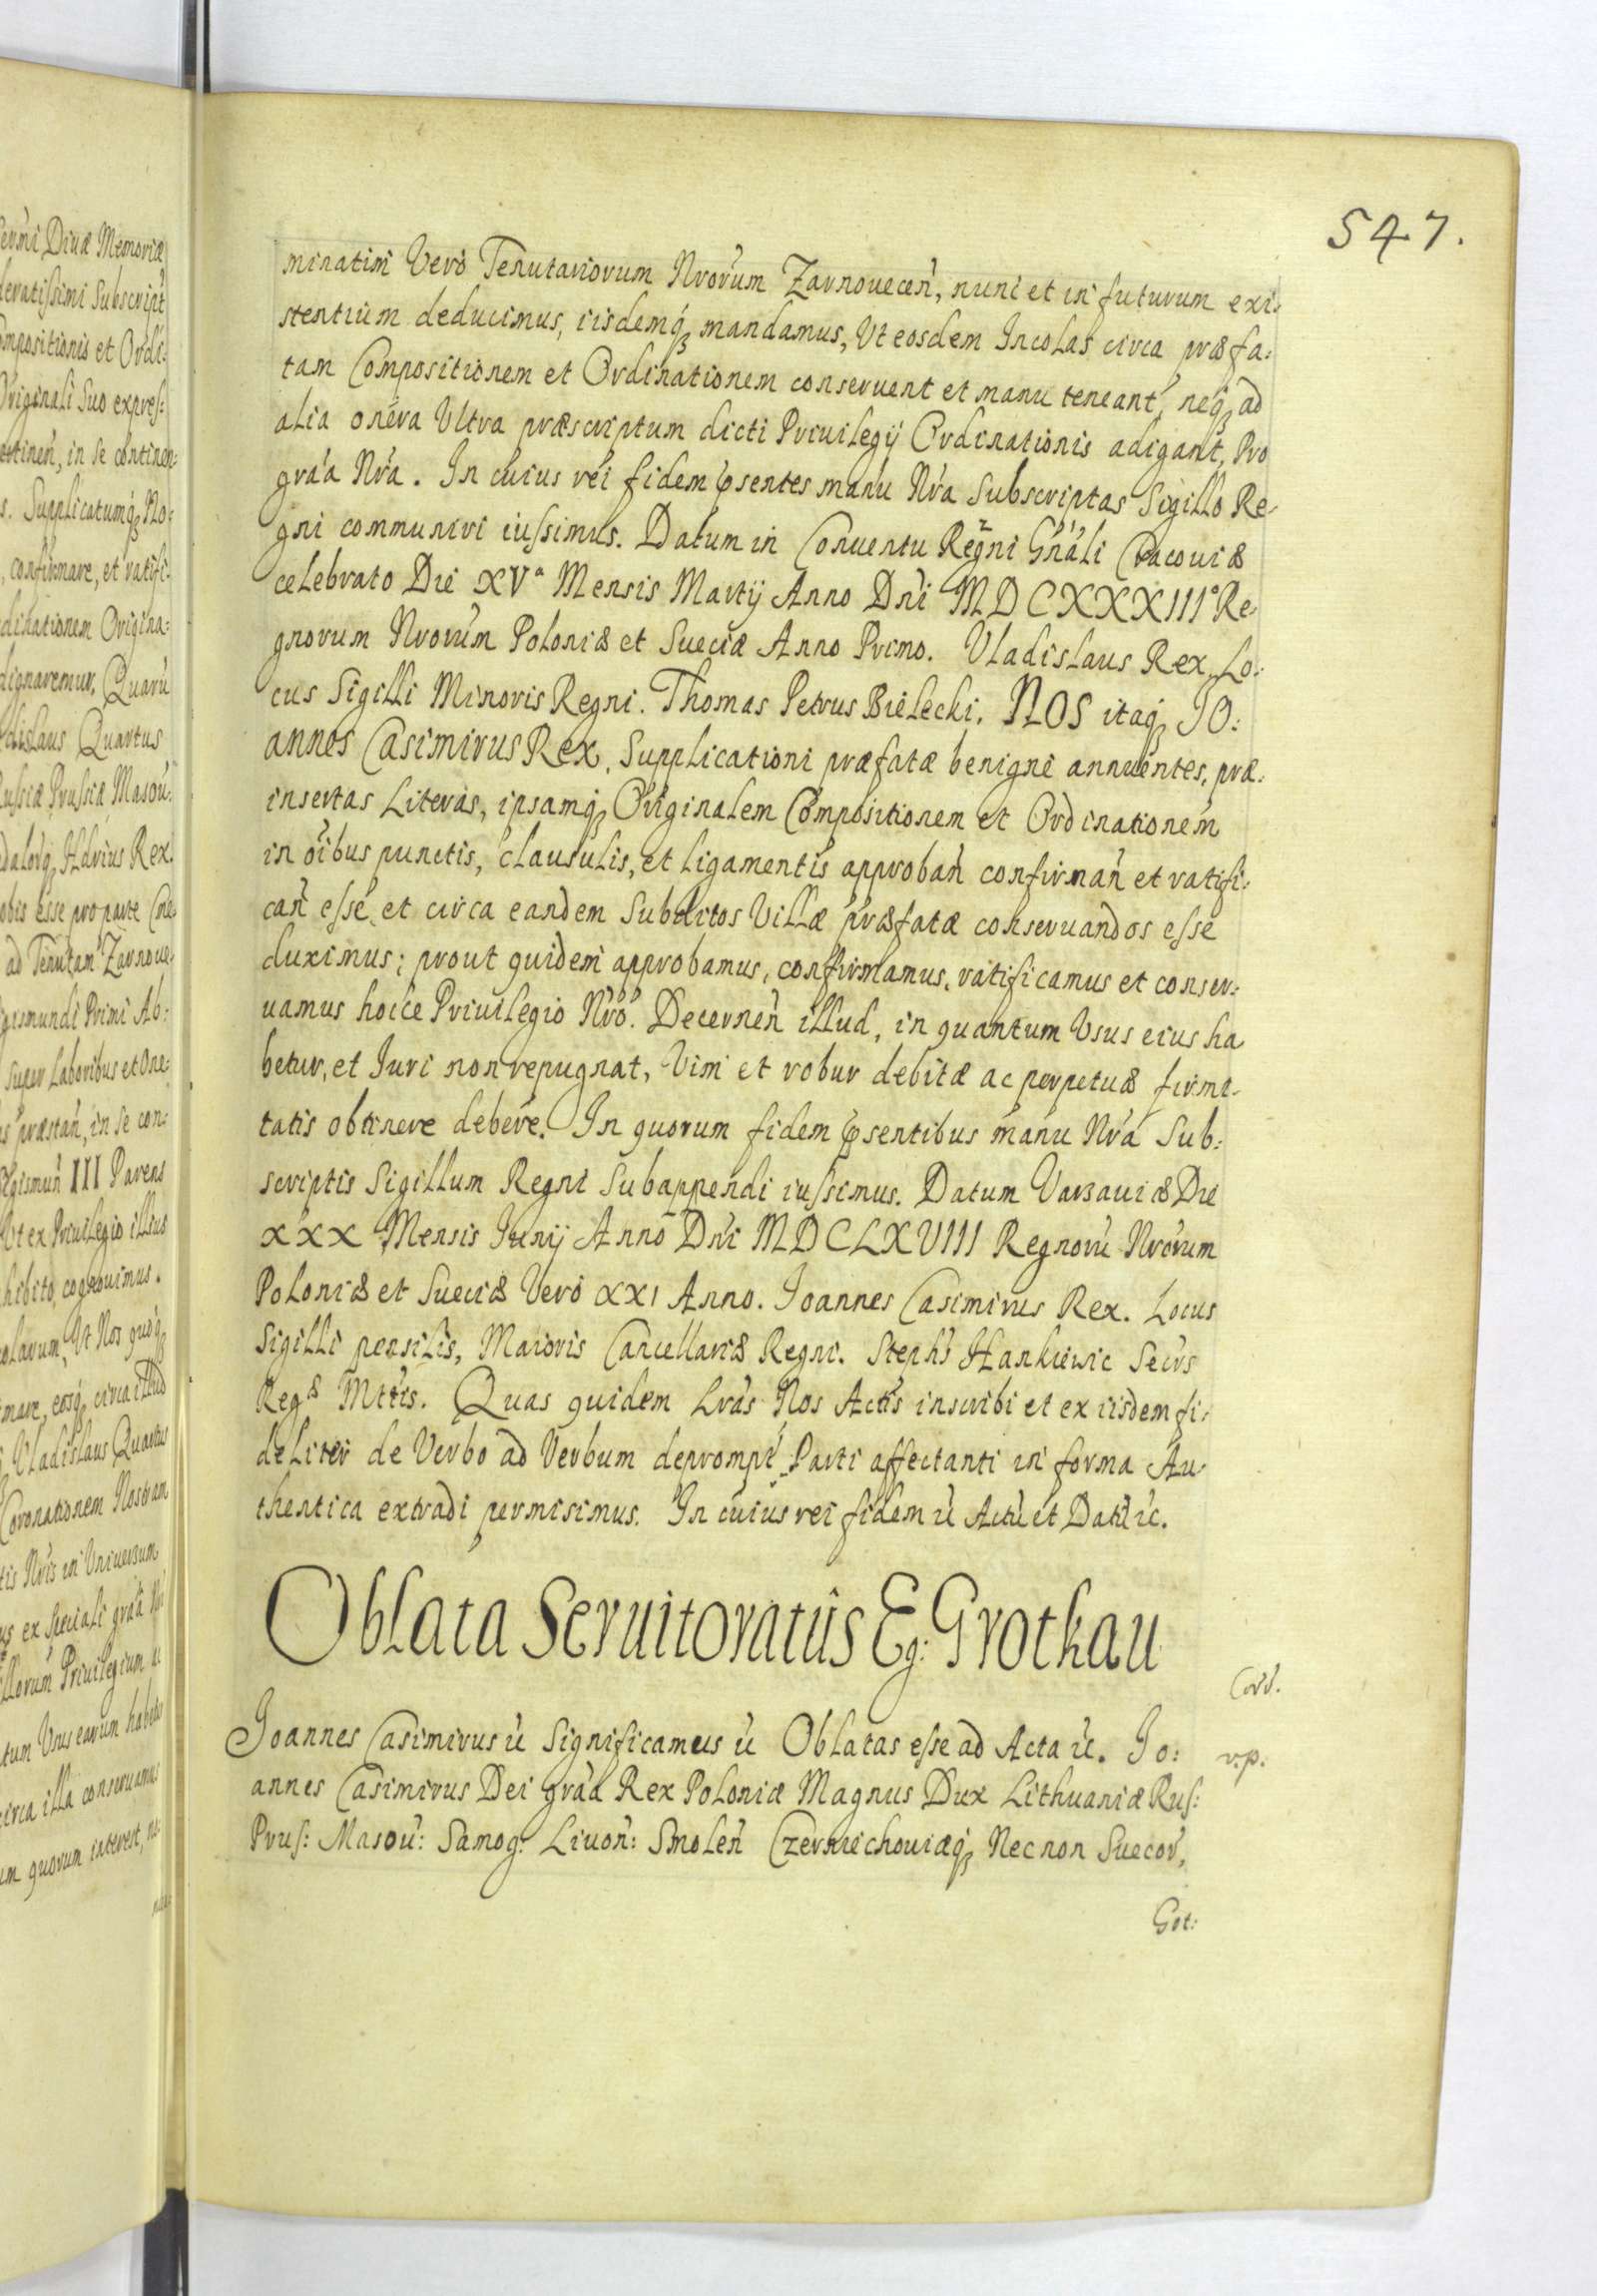 547.
minatim Vero Tenutariorum Nrorum Zarnouecen, nunc et in futurum exi-
stentium deducimus, iisdemq; mandamus, Vt eosdem Incolas circa præfa:
tam Compositionem et Ordinationem conseruent et manu teneant, neq; ad
alia onera Vltra præscriptum dicti Priuilegij Ordinationis adigant, Pro
gra'a Nr'a. In cuius rei fidem p̱sentes manu Nr'a Subscriptas Sigillo Re-
gni communiri iussimus. Datum in Conuentu Regni Gn'ali Cracouiæ
celebrato Die XVª Mensis Martij Anno Dn'i MDCXXXIII° Re-
gnorum Nrorum Poloniæ et Sueciæ Anno Primo. Vladislaus Rex, Lo:
cus Sigilli Minoris Regni. Thomas Petrus Bielecki. NOS itaq; JO:
annes Casimirus Rex, Supplicationi præfatæ benigne annuentes, præ-
insertas Literas, ipsamq; Originalem Compositionem et Ordinationem
in oibus punctis, clausulis, et ligamentis approban' confirman' et ratifi:
can' esse, et circa eandem Subditos Villæ præfatæ conseruandos esse
duximus; prout quidem approbamus, confirmamus, ratificamus et conser:
uamus hoice Priuilegio Nro. Decernen' illud, in quantum Vsus eius ha
betur, et Iuri non repugnat, Vim et robur debitæ ac perpetuæ firmi-
tatis obtinere debere. In quorum fidem p̱sentibus manu Nr'a Sub:
scriptis Sigillum Regni Subappendi iussimus. Datum Varsauiæ Die
XXX Mensis Junij Anno Dn'i MDCLXVIII Regnoru' Nrorum
Poloniæ et Sueciæ Vero XXI Anno. Joannes Casimirus Rex. Locus
Sigilli pensilis, Maioris Cancellariæ Regni. Steph's Hankiewic Secr's
Regæ Mttis. Quas quidem Lr'as Nos Actis inscribi et ex iisdem fi-
deliter de Verbo ad Verbum depromp't Parti affectanti in forma Au-
thentica extradi permisimus. In cuius rei fidem &c Actu' et Datu' &c.
Oblata Seruitoratus Eg: Grotkau
Corr.
Joannes Casimirus &c Significamus &c Oblatas esse ad Acta &c. Jo:
v.p.
annes Casimirus Dei gra'a Rex Poloniæ Magnus Dux Lithuaniæ Rus:
Prus: Masou: Samog: Liuon: Smolen' Czerniechouiæq; Necnon Suecor',
Got: